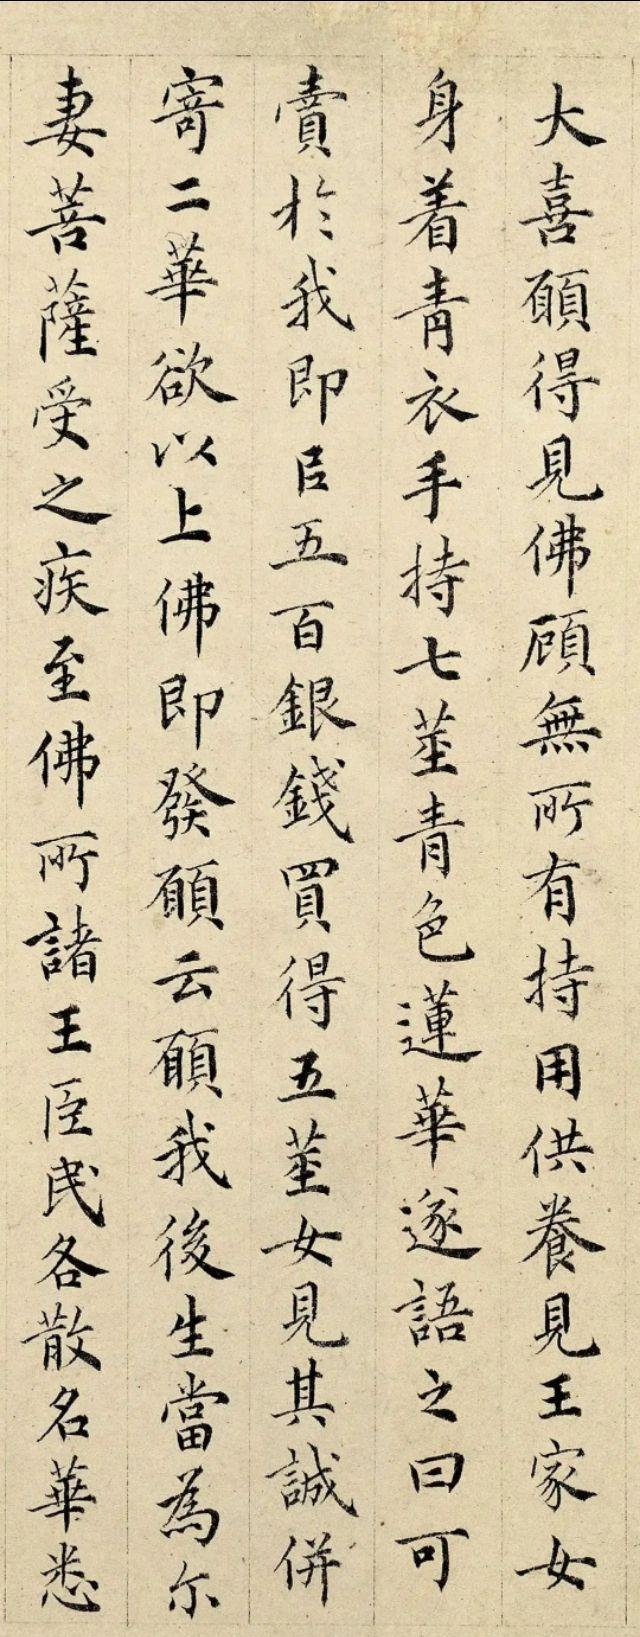 大喜願得見佛顧無所有持用供養見王家女
身着青衣手持七莖青色蓮華遂語之曰可
賣於我即㠯五百銀錢買得五莖女見其誠併
寄二華欲以上佛即發願云願我後生當為尔
妻菩薩受之疾至佛所諸王臣民各散名華悉